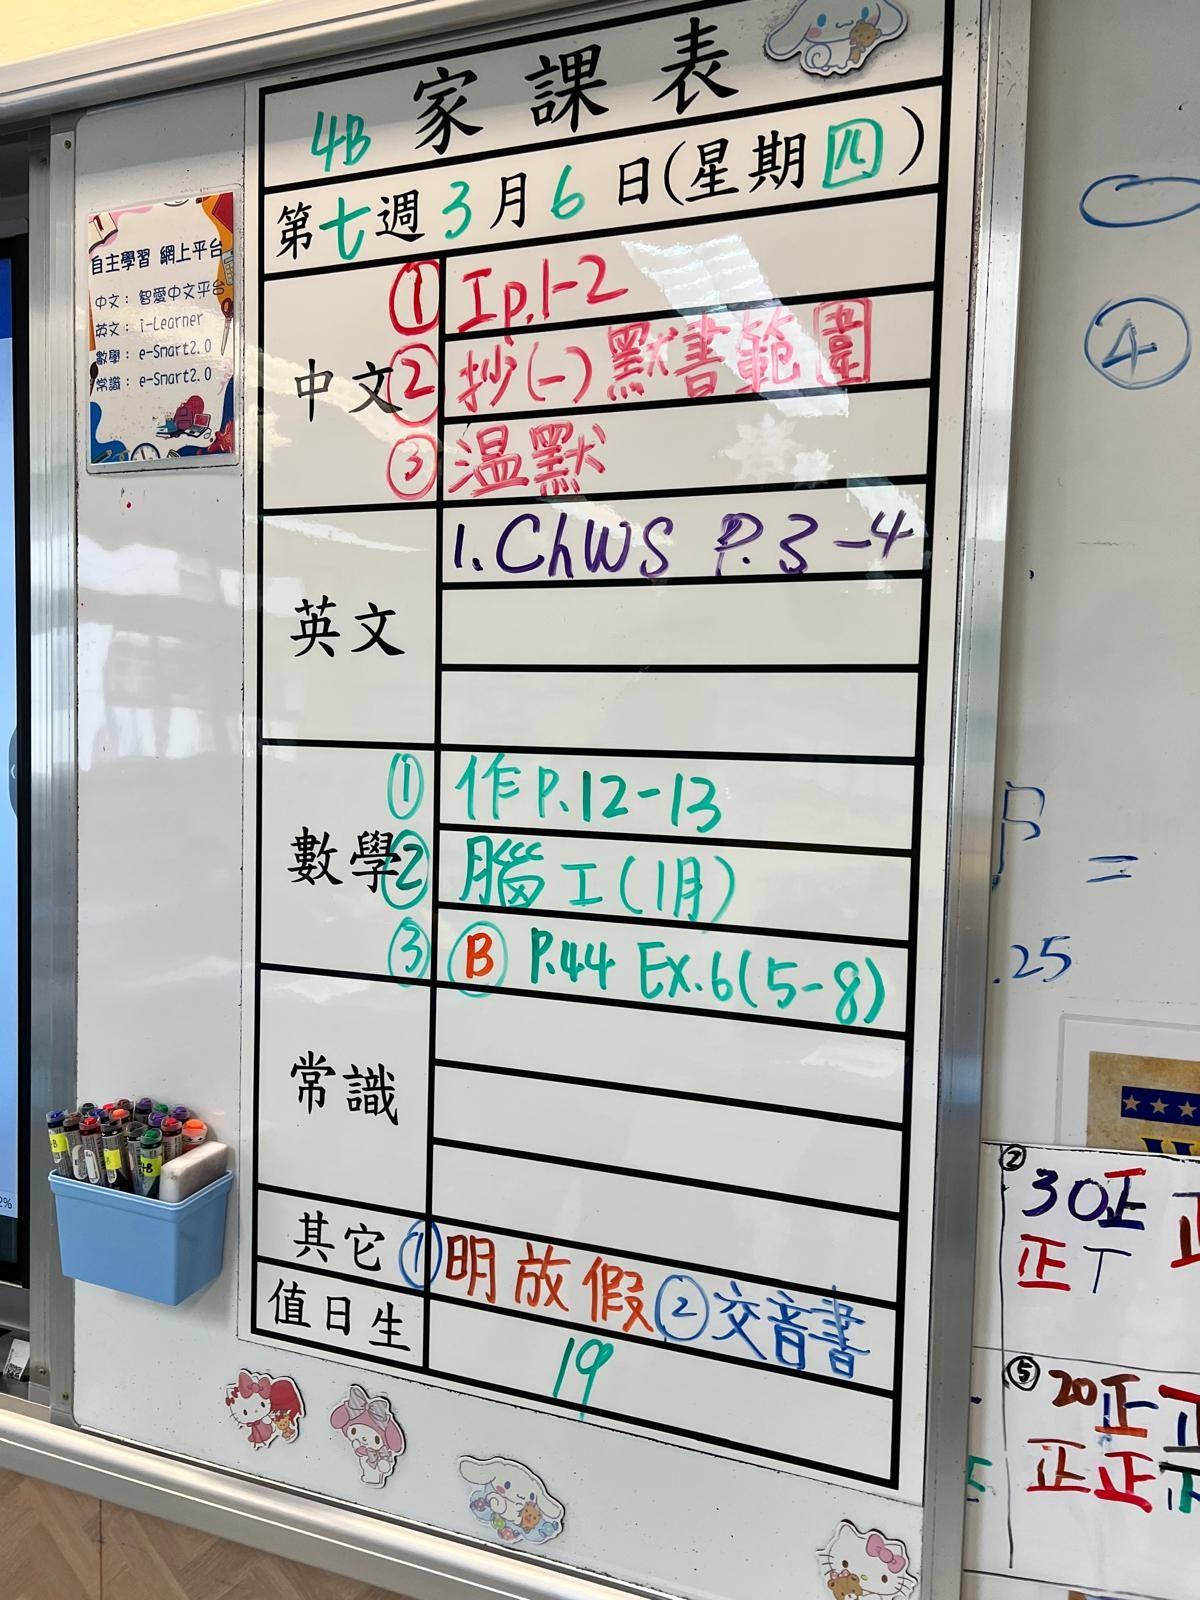 4B 家課表
第七週3月6日(星期四)
自主學習 網上平台
中文： 智愛中文平台
英文： i-Learner
數學： e-Smart2.0
常識： e-Smart2.0
中文
① Ip.1-2
② 抄(一)默書範圍
③ 温默
英文
1. ChWS P.3-4
數學
① 作P.12-13
② 腦工(1月)
③ Ⓑ P.44 Ex.6(5-8)
常識
其它 ①明放假 ②交音書
值日生 19
④
=
.25
② 30正
正丅
⑤ 20正正
正正
2%